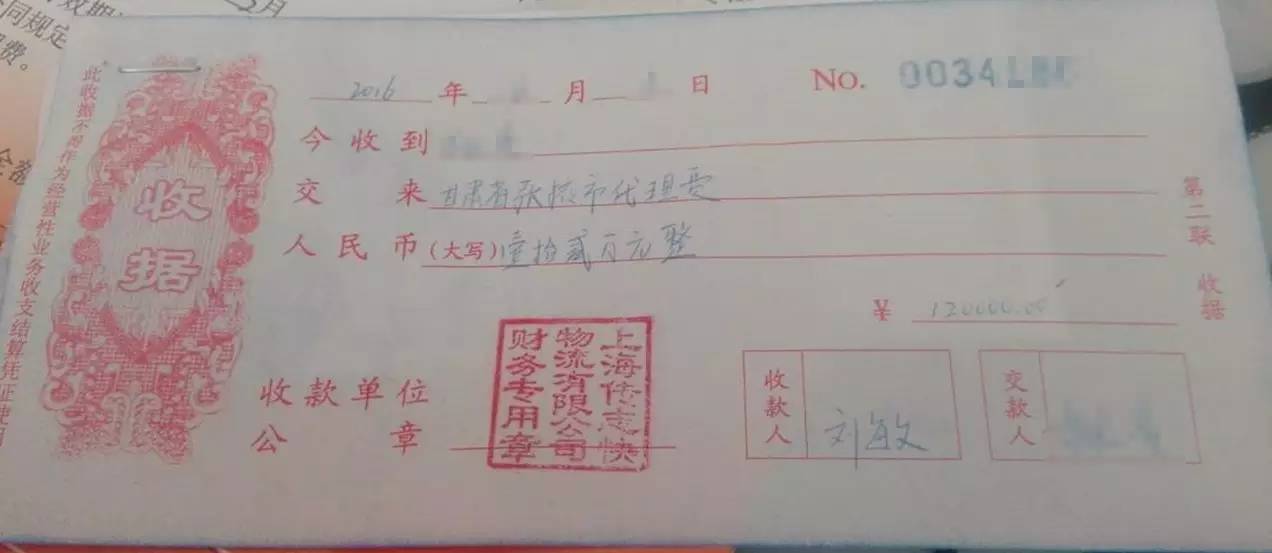 5月
同规定
费。
此收据不得作为经营性业务收支结算凭证使用
收据
2016年 月 日 NO. 0034
今收到
交来 甘肃省张掖市代理费
人民币(大写) 壹拾贰万元整
¥ 120000.00
收款单位
公章
上海倍志快
物流有限公司
财务专用章
收款人 刘敏
交款人
第二联 收据